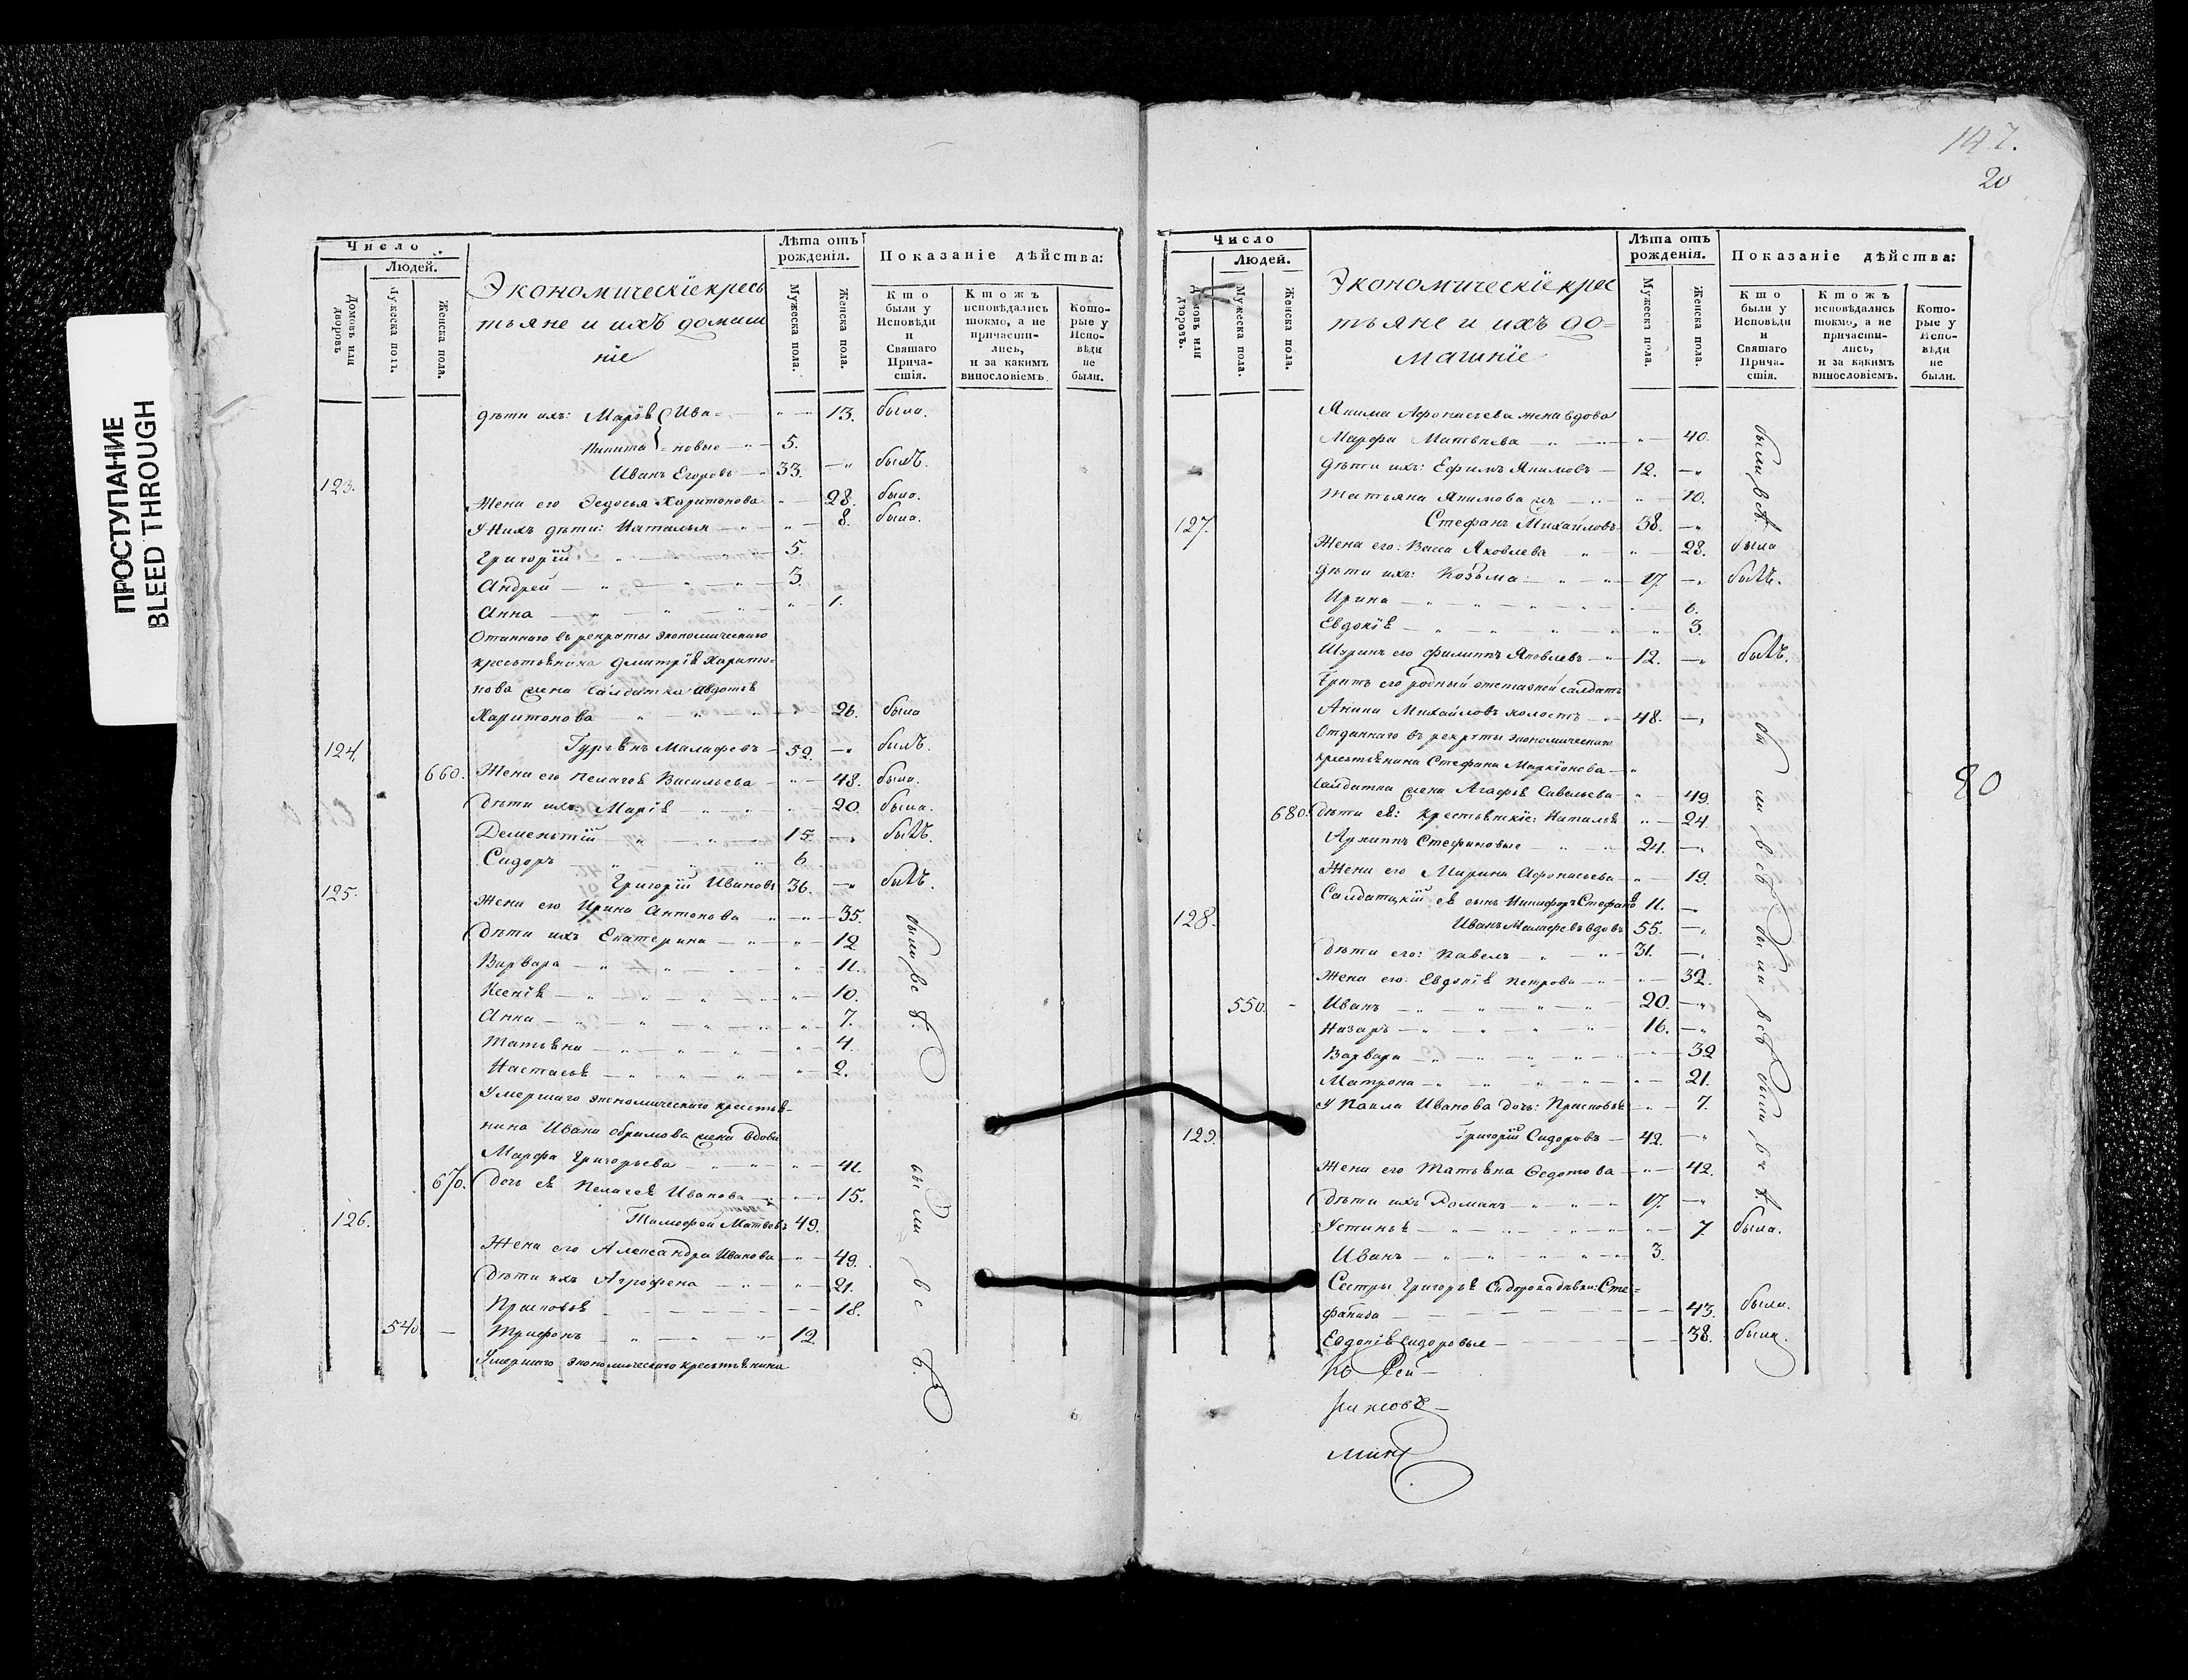 ПРОСТУПАНИЕ
BLEED THROUGH
Число
Людей.
Домовъ или дворовъ
Мужеска полъ.
Женска пола.
Экономическіе кресь
тьяне и ихъ домаш
ніе
Лѣта отъ рожденія.
Мужеска пола.
Женска пола.
Показаніе дѣйства:
Кто были у Исповѣди и Святаго Причастія.
Ктожъ исповѣдались токмо, а не причастились, и за какимъ винословіемъ
Которые у Исповѣди не были.
дѣти ихъ: Марія Ива= 13. была.
Никита новые 5.
123. Иванъ Егоровъ 33. былъ.
Жена его Федосья Харитонова 28. была.
У нихъ дѣти: Наталья 8. была.
Григорій 5.
Андрей 3.
Анна 1.
Отаннаго въ рекруты экономическаго
крестьянина Дмитрія Харито=
нова жена салдатка Авдотья
Харитонова 26. была
124. Гурьянъ Малафевъ 59. былъ.
660. Жена его Пелагея Васильева 48. была.
Дѣти ихъ: Марія 20. была.
Дементій 15. былъ.
Сидоръ 6
125. Григорій Ивановъ 36. былъ.
Жена его Ирина Антонова 35.
Дѣти ихъ Екатерина 12
Варвара 11.
Ксенія 10.
Анна 7.
Татьяна 4.
Настасья 2.
были всѣ.
Умершаго экономическаго крестья-
нина Ивана Абрамова жена вдова
Марфа Григорьева 41.
670. Дочь ея Пелагея Иванова 15.
126. Тимофей Матвевъ 49.
Жена его Александра Иванова 49.
Дѣти ихъ Агрофена 21.
Прасковья 18.
540 Трифонъ 12
Умершаго экономическаго крестьянина
были всѣ.
147.
20
Число
Людей.
Домовъ или дворовъ.
Мужеска пола.
Женска пола.
Экономическіе крес
тьяне и ихъ до=
машніе
Лѣта отъ рожденія.
Мужеска пола.
Женска пола.
Показаніе дѣйства:
Кто были у Исповѣди и Святаго Причастія.
Ктожъ исповѣдались токмо, а не причастились, и за какимъ винословіемъ.
Которые у Исповѣди не были.
Якима Афонасьева жена вдова
Марфа Матвѣева 40.
Дѣти ихъ: Ефимъ Якимовъ 12.
Татьяна Якимова 10.
были всѣ.
127. Стефанъ Михайловъ 38.
Жена его: Васса Яковлева 28. была
Дѣти ихъ: Козьма 17. былъ.
Ирина 6.
Евдокія 3.
Шуринъ его Филиппъ Яковлевъ 12. былъ.
Братъ его родный отставной салдатъ
Михайловъ холостъ 48.
Отданнаго въ рекруты экономическаго
крестьянина Стефана Маркіонова
салдатка жена Агафья Савельева 49.
680. Дѣти ея: крестьянскіе: Наталья 24.
Архиппъ Стефановые 24.
Жена его Марина Афонасьева 19.
Салдатскій ея сынъ Никифоръ Стефано 11.
были всѣ
128. Иванъ Малафевъ вдовъ 55.
Дѣти его: Павелъ 31.
Жена его: Евдокія Петрова 32.
550. Иванъ 20.
Назаръ 16.
Варвара 32
Матрона 21.
У Павла Иванова дочь: Прасковья 7.
были всѣ
129. Григорій Сидоровъ 42.
Жена его Татьяна Федотова 42.
Дѣти ихъ Романъ 17.
были всѣ.
Устинья 7. была.
Иванъ 3.
Сестры Григорья Сидорова дѣвки: Сте=
фанида 43. была.
Евдокія Сидоровые 38. была.
80